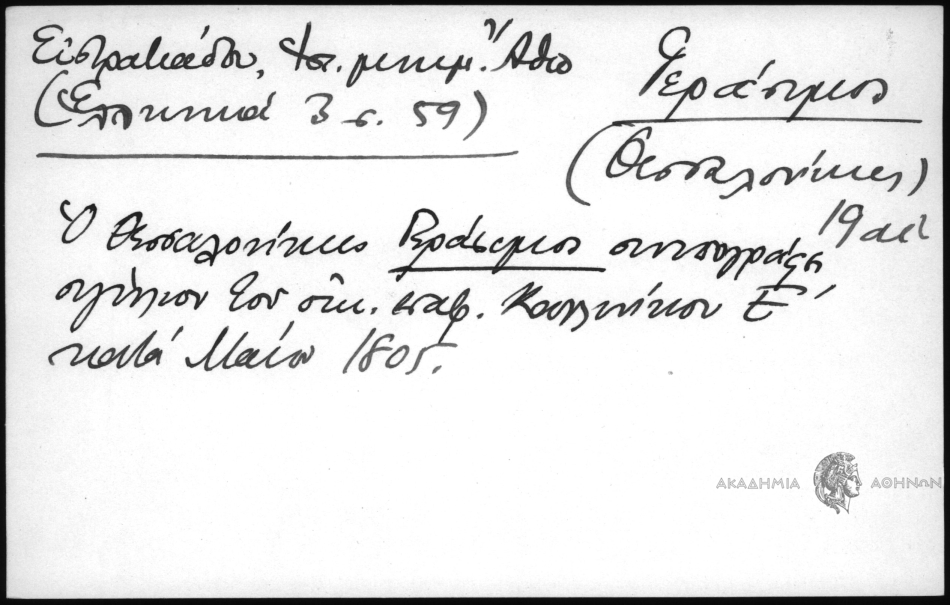 Εὐστρατιάδου, Ἱστ. μνημ. Ἄθω
(Ἑλληνικά 3 σ. 59)
Γεράσιμος
(Θεσσαλονίκης)
19 αἰ.
Ὁ Θεσσαλονίκης Γεράσιμος συνυπογράφει
σιγίλλιον τοῦ οἰκ. πατρ. Καλλινίκου Ε΄
κατά Μάϊον 1805.
ΑΚΑΔΗΜΙΑ ΑΘΗΝΩΝ